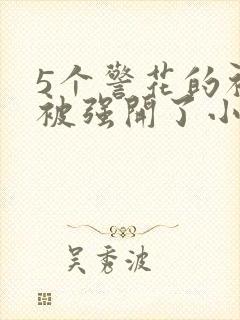 5个警花的被
被强開了小
吴秀波